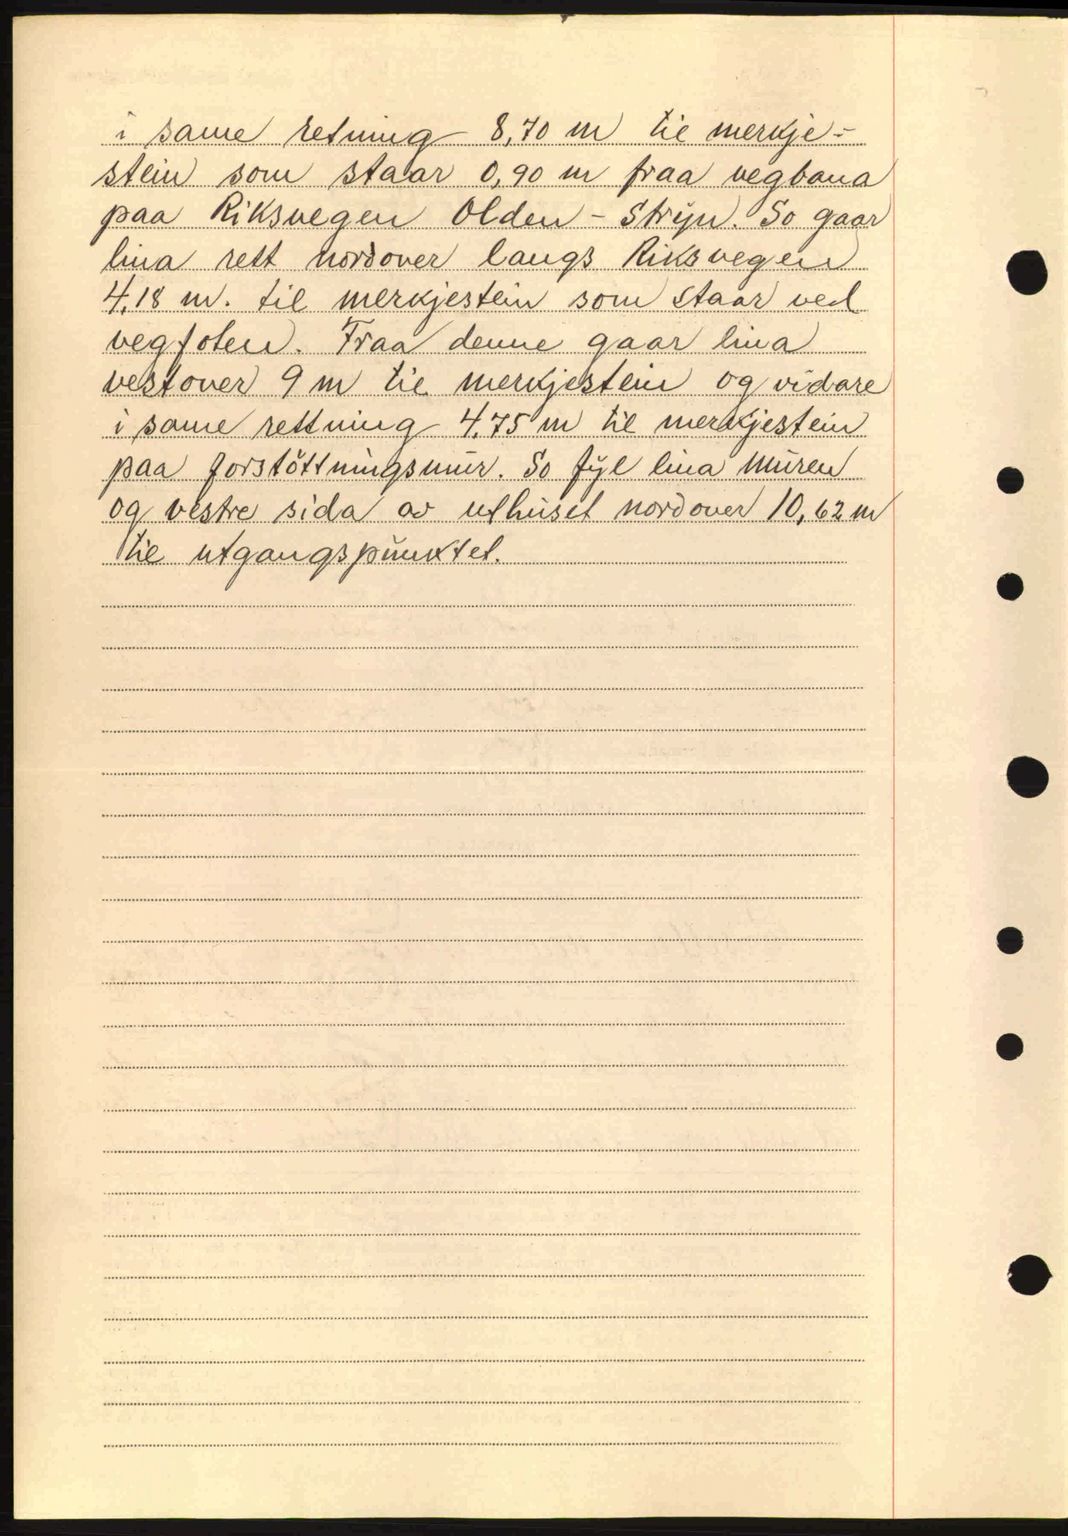 i same retning 8,70 m til merkje-
stein som staar 0,90 m fraa vegbana
paa Riksvegen Olden - Stryn. So gaar
lina rett nordover langs Riksvegen
4,18 m. til merkjestein som staar ved
vegfoten. Fraa denne gaar lina
vestover 9 m til merkjestein og vidare
i same rettning 4,75 m til merkjestein
paa forstöttningsmur. So fyl lina muren
og vestre sida av uthuset nordover 10,62 m
til utgangspunktet.